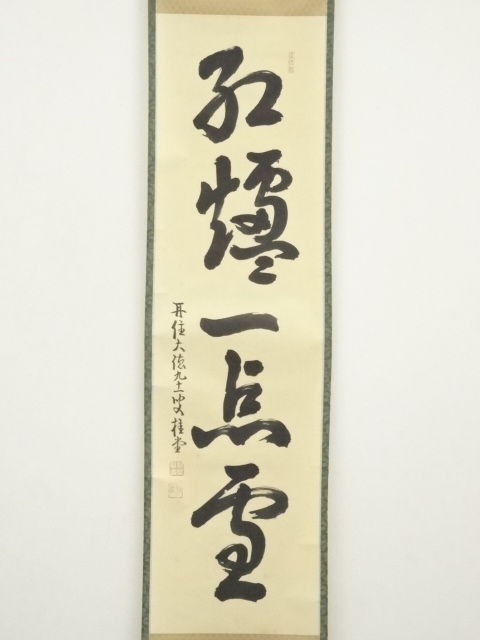 紅爐一点雪
再住大徳九十一叟桂堂